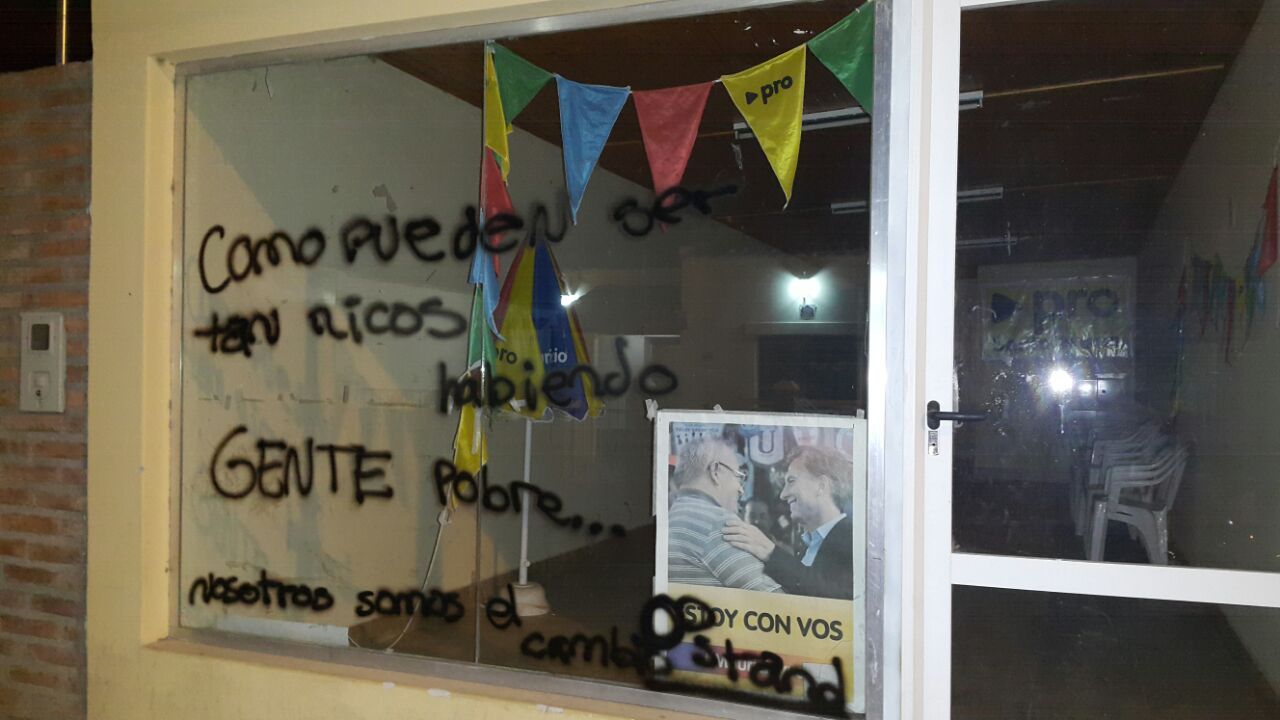 pro
Como pueden ser
tan ricos
pro
habiendo
GENTE pobre...
pro
nosotros somos el
cambio
stand
STOY CON VOS